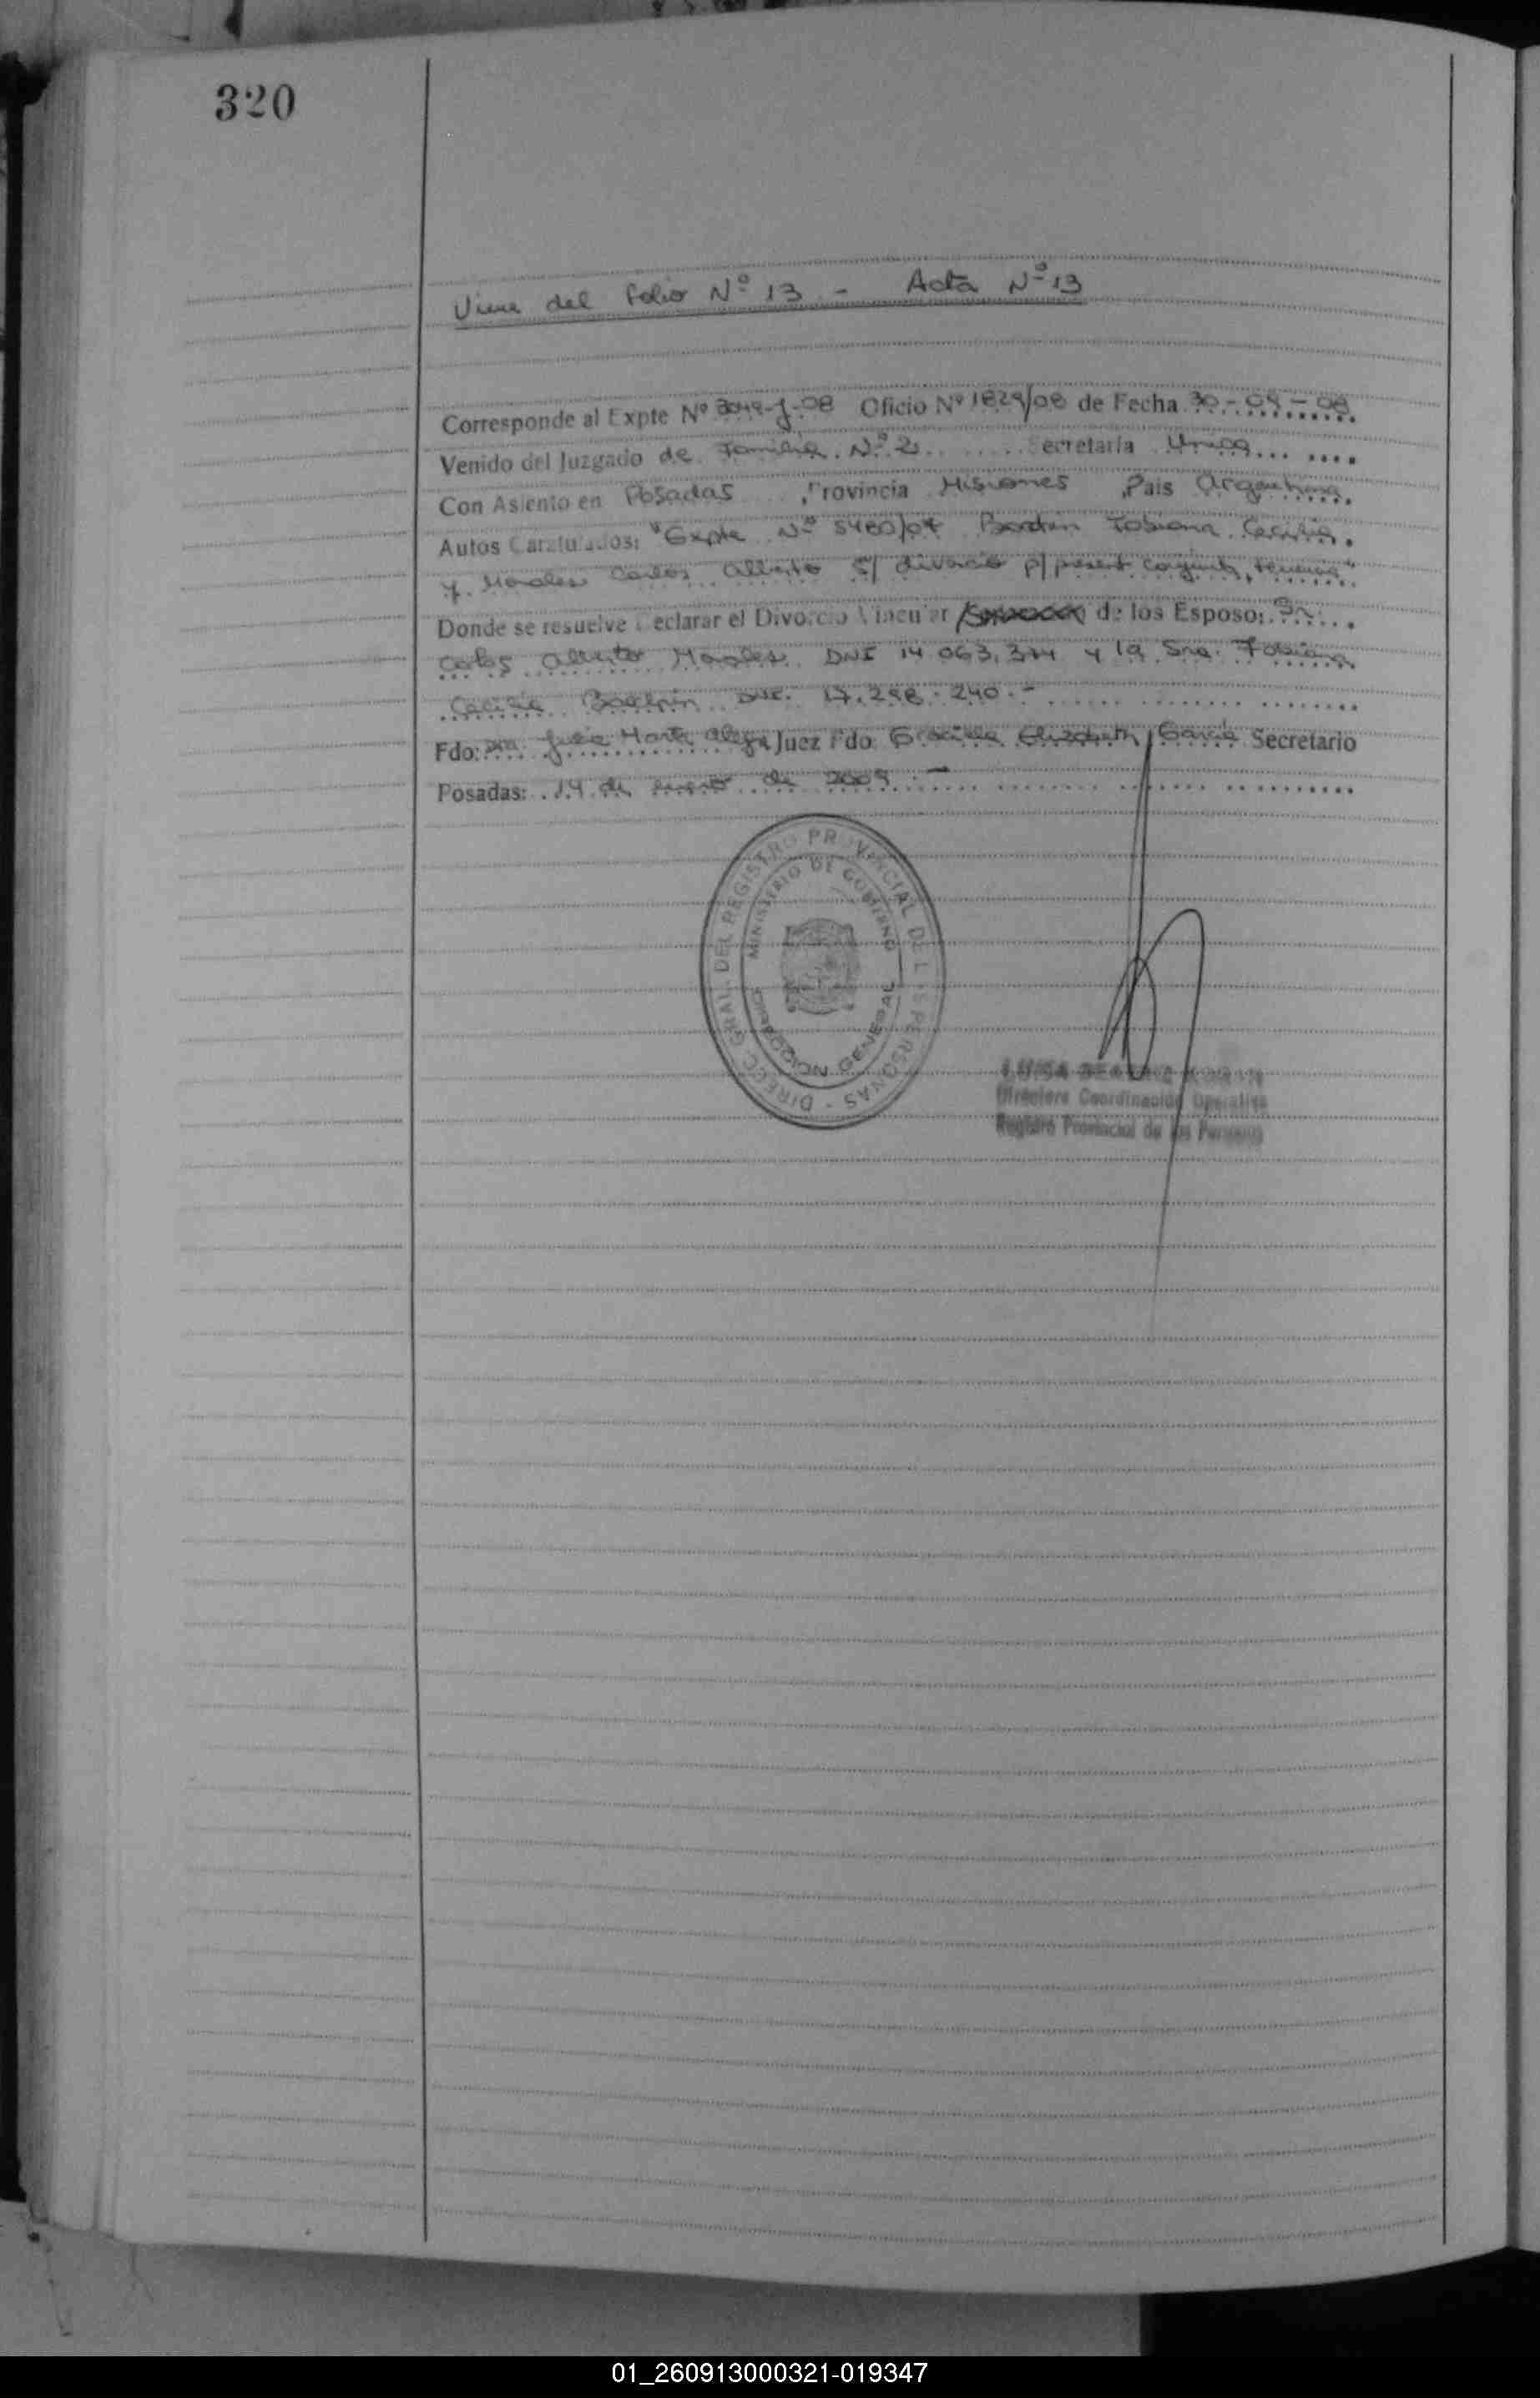 320
Viene del folio Nº 13 - Acta Nº 13
Corresponde al Expte Nº 3049-J-08 Oficio Nº 1829/08 de Fecha 30-09-08
Venido del Juzgado de Familia Nº 2 Secretaria Unica
Con Asiento en Posadas, Provincia Misiones, Pais Argentina.
Autos Caratulados: "Expte Nº 5480/07 Fabiana Cecilia
y Morales Carlos Alberto S/ divorcio p/ present conjunta, tenencia"
Donde se resuelve Declarar el Divorcio Vincular / de los Esposo: Sr.
Carlos Alberto Morales DNI 14 063.374 y la Sra. Fabiana
Cecilia DNI. 17.298.240.-
Fdo: Dra. Marta Juez Fdo: Graciela Elizabeth Garcia Secretario
Posadas: 14 de enero de 2009.-
DIRECC. GRAL. DEL REGISTRO PROVINCIAL DE LAS PERSONAS -
MINISTERIO DE GOBIERNO
GENERAL
LUISA BEATRIZ
Directora Coordinación Operativa
Registro Provincial de las Personas
01_260913000321-019347